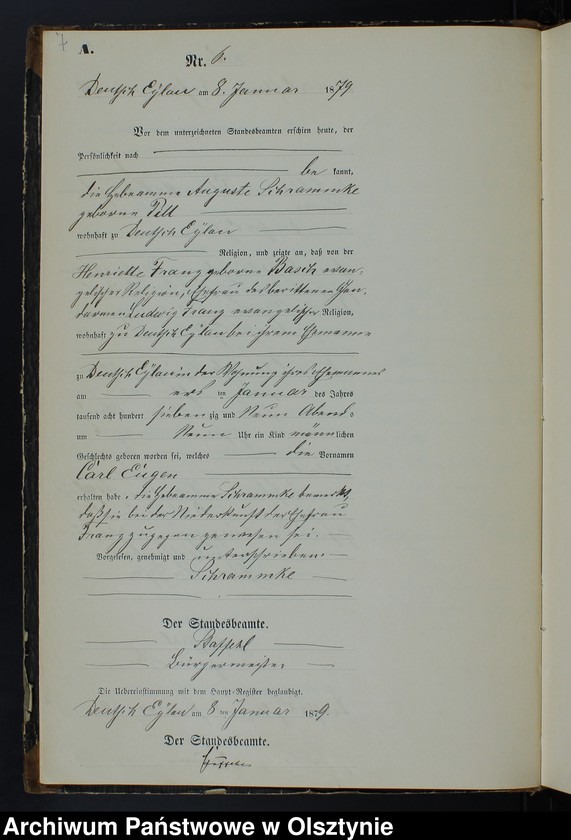 7
A.
Nr. 6.
Deutsch Eylau am 8. Januar 1879
Vor dem unterzeichneten Standesbeamten erschien heute, der
Persönlichkeit nach
be kannt,
die Hebeamme Auguste Schrammke
geborne
wohnhaft zu Deutsch Eylau
Religion, und zeigte an, daß von der
Henriette Franz geborne Basch evan-
gelischer Religion, Ehefrau des berittenen Gen-
darmen Ludwig Franz evangelischer Religion,
wohnhaft zu Deutsch Eylau bei ihrem Ehemanne
zu Deutsch Eylau in der Wohnung ihres Ehemannes
am ersten Januar des Jahres
tausend acht hundert sieben zig und Neun Abends
um Neun Uhr ein Kind männlichen
Geschlechts geboren worden sei, welches die Vornamen
Carl Eugen
erhalten habe, die Hebeamme Schrammke bemerkt,
daß sie bei der Niederkunft der Ehefrau
Franz zugegen gewesen sei.
Vorgelesen, genehmigt und unterschrieben
Schrammke
Der Standesbeamte.
Bürgermeister
Die Uebereinstimmung mit dem Haupt-Register beglaubigt.
Deutsch Eylau am 8 ten Januar 1879.
Der Standesbeamte.
Archiwum Państwowe w Olsztynie